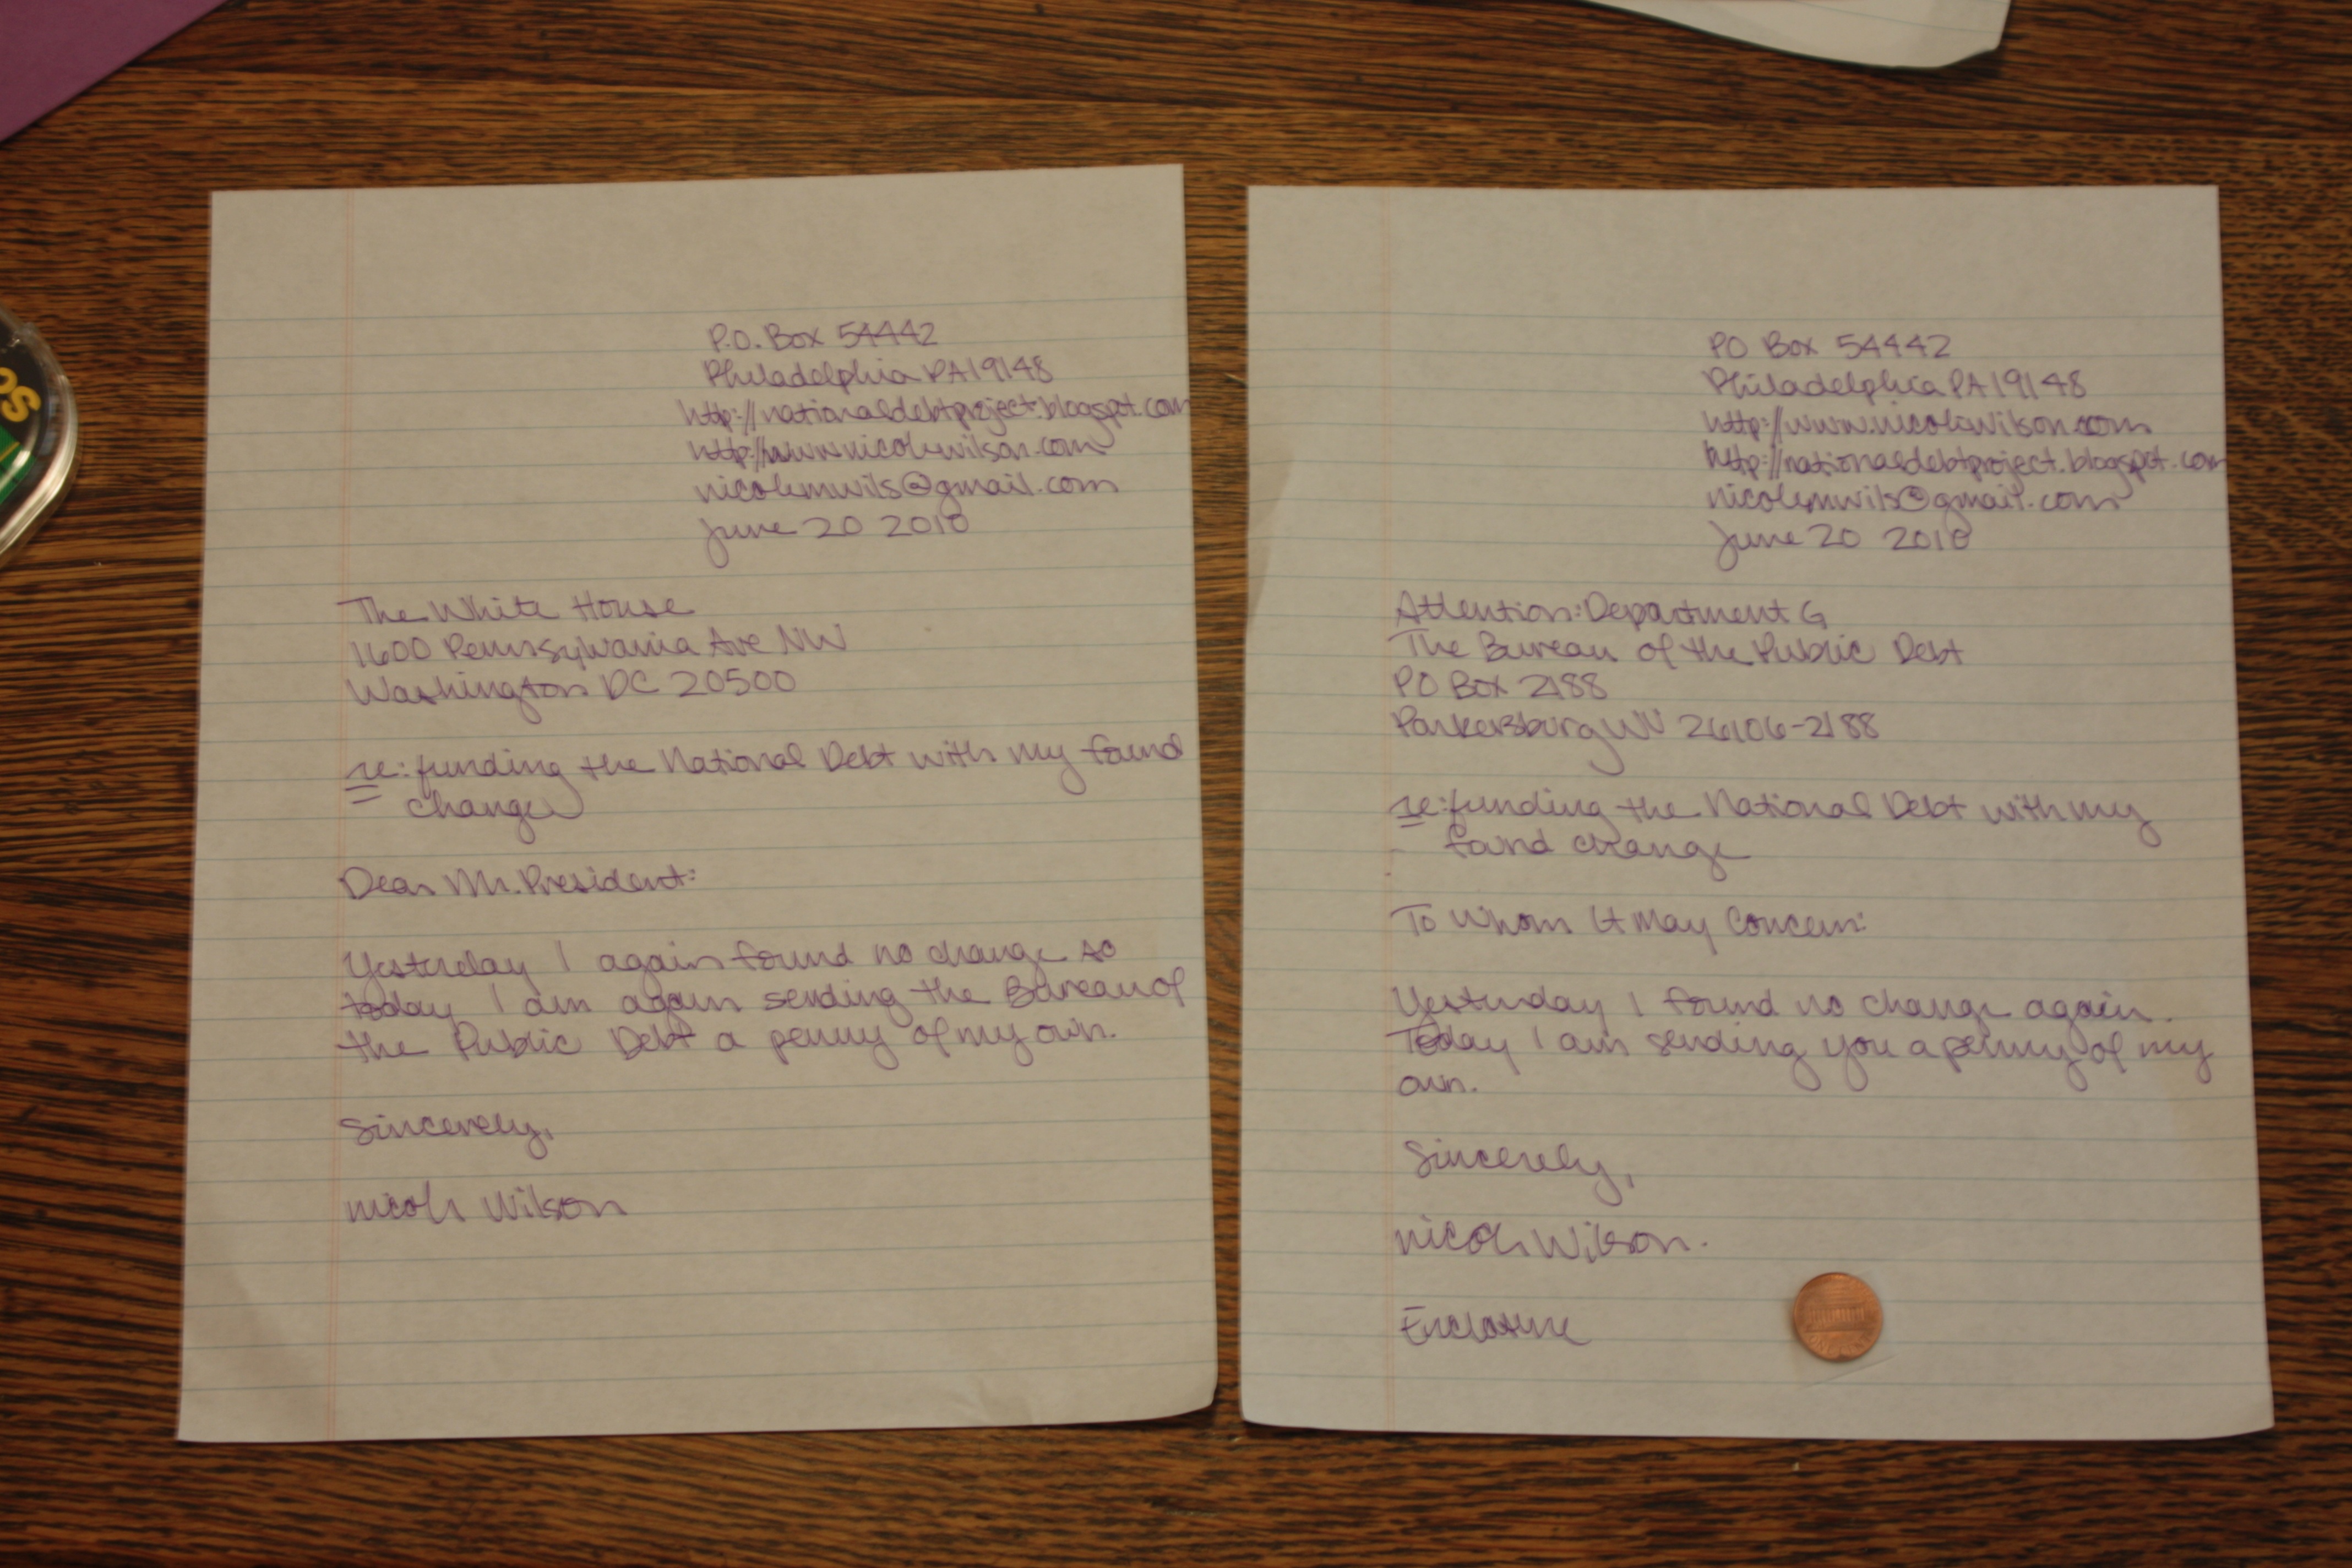 P.O. Box 54442
Philadelphia PA 19148
http://nationaldebtproject.blogspot.com
http://www.nicolewilson.com
nicolemwils@gmail.com
June 20 2010
The White House
1600 Pennsylvania Ave NW
Washington DC 20500
re: funding the National Debt with my found
change
Dear Mr. President:
Yesterday I again found no change so
today I am again sending the Bureau of
the Public Debt a penny of my own.
Sincerely,
Nicole Wilson
PO Box 54442
Philadelphia PA 19148
http://www.nicolewilson.com
http://nationaldebtproject.blogspot.com
nicolemwils@gmail.com
June 20 2010
Attention: Department G
The Bureau of the Public Debt
PO Box 2188
Parkersburg WV 26106-2188
re: funding the National Debt with my
found change
To Whom It May Concern:
Yesterday I found no change again.
Today I am sending you a penny of my
own.
Sincerely,
Nicole Wilson.
Enclosure